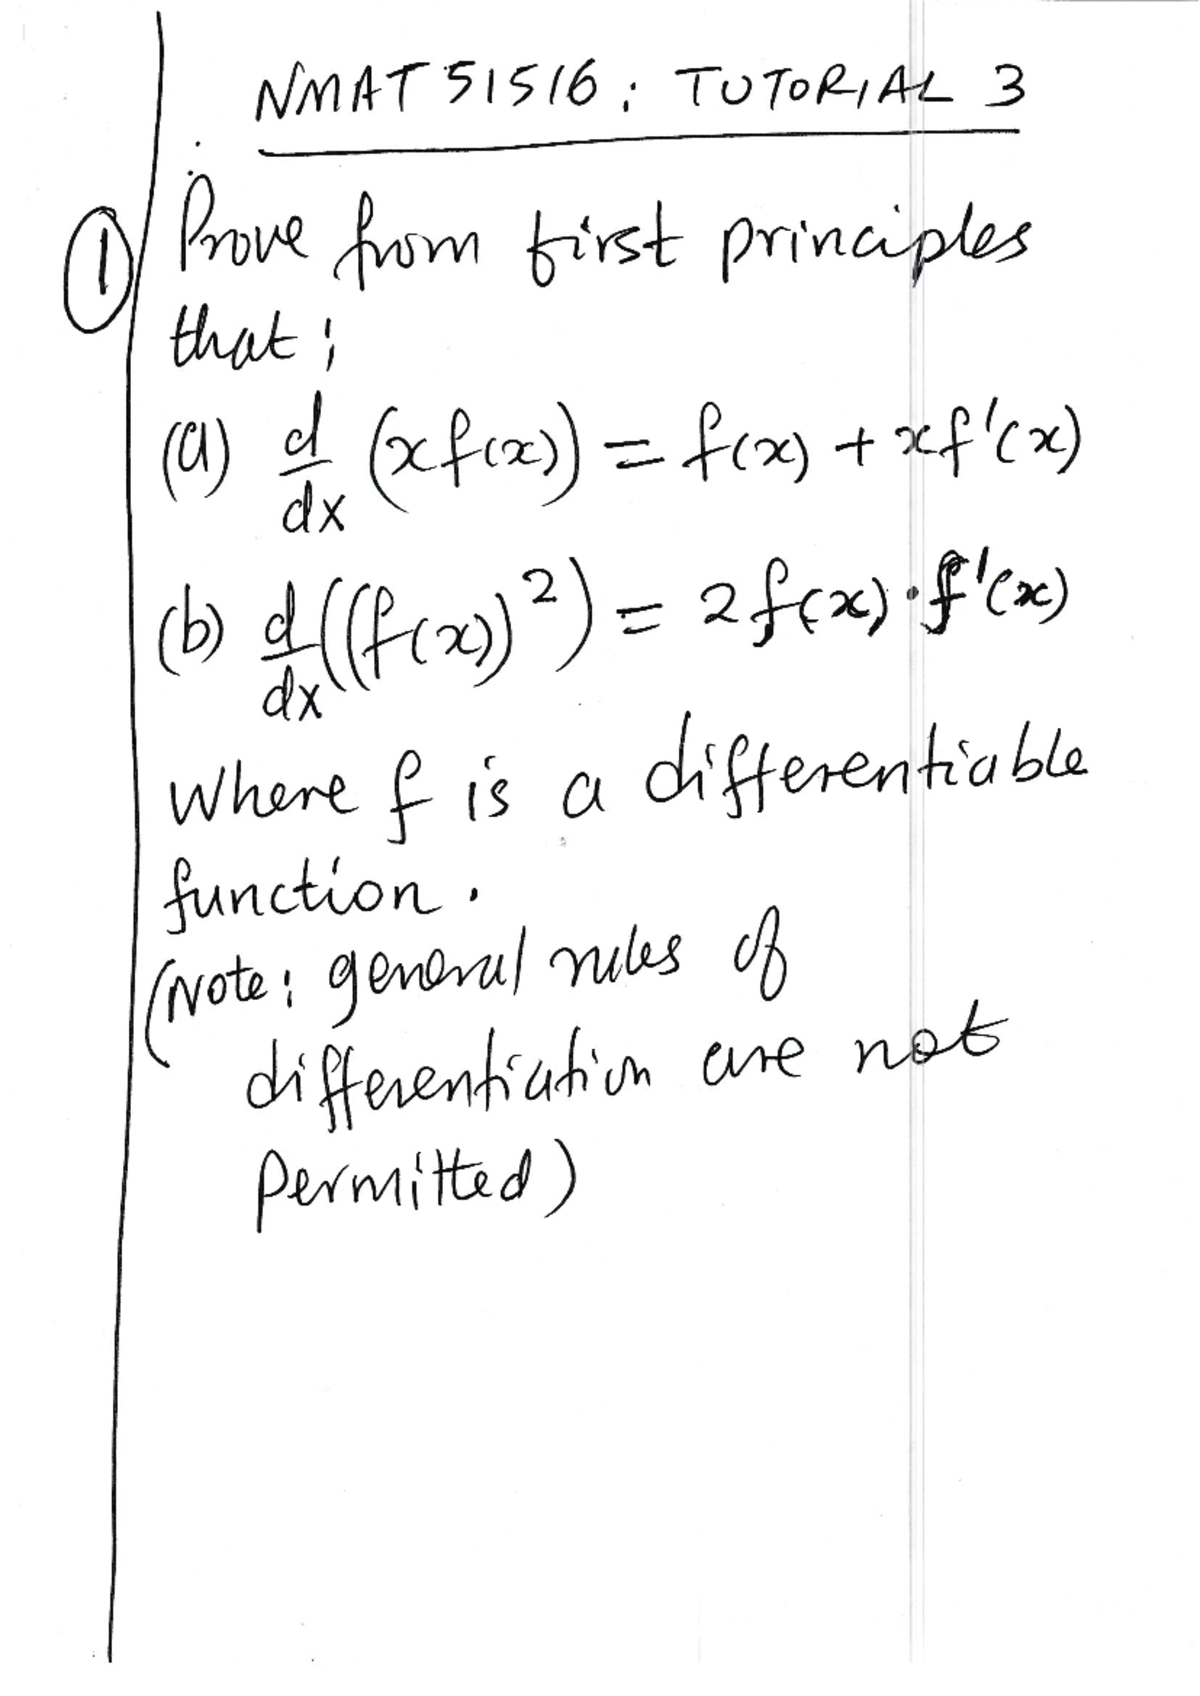 NMAT 51516 : TUTORIAL 3
① Prove from first principles
that ;
(a) d/dx (xf(x)) = f(x) + xf'(x)
(b) d/dx ((f(x))²) = 2f(x)·f'(x)
where f is a differentiable
function.
(Note: general rules of
differentiation are not
permitted)